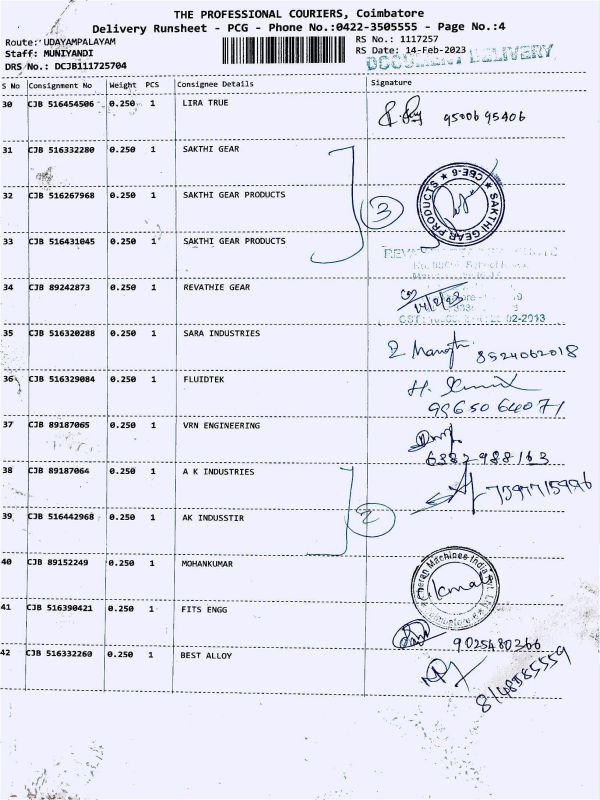 THE PROFESSIONAL COURIERS, Coimbatore
Delivery Runsheet - PCG - Phone No.:0422-3505555 - Page No.:4
Route: UDAYAMPALAYAM RS No.: 1117257
Staff: MUNIYANDI RS Date: 14-Feb-2023
DRS No.: DCJB111725704 DOCUMENT DELIVERY
S No Consignment No Weight PCS Consignee Details Signature
30 CJB 516454506 0.250 1 LIRA TRUE 95006 95406
31 CJB 516332280 0.250 1 SAKTHI GEAR
SAKTHI GEAR PRODUCTS ★ CBE-6 ★
32 CJB 516267968 0.250 1 SAKTHI GEAR PRODUCTS 3
33 CJB 516431045 0.250 1 SAKTHI GEAR PRODUCTS
34 CJB 89242873 0.250 1 REVATHIE GEAR 14/2/23
35 CJB 516320288 0.250 1 SARA INDUSTRIES 8524062018
36 CJB 516329084 0.250 1 FLUIDTEK 99650 64071
37 CJB 89187065 0.250 1 VRN ENGINEERING 6382988163
38 CJB 89187064 0.250 1 A K INDUSTRIES
39 CJB 516442968 0.250 1 AK INDUSSTIR 2
40 CJB 89152249 0.250 1 MOHANKUMAR
Cheran Machines India Pvt. Ltd. Coimbatore
41 CJB 516390421 0.250 1 FITS ENGG 9025480366
42 CJB 516332260 0.250 1 BEST ALLOY